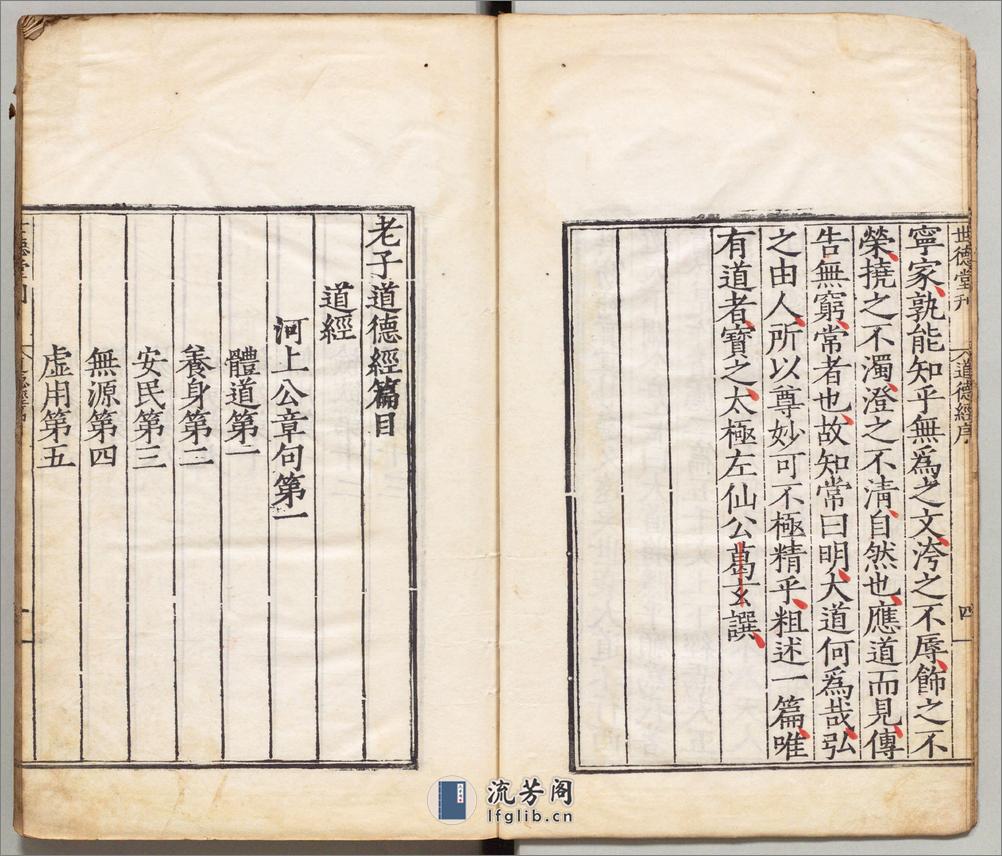 世德堂刊 道德經序 四
寧家孰能知乎無爲之文洿之不辱飾之不
榮撓之不濁澄之不淸自然也應道而見傳
告無窮常者也故知常曰明大道何爲哉弘
之由人所以尊妙可不極精乎粗述一篇唯
有道者寶之太極左仙公葛玄譔
老子道德經篇目
道經
河上公章句第一
體道第一
養身第二
安民第三
無源第四
虛用第五
流芳阁
lfglib.cn